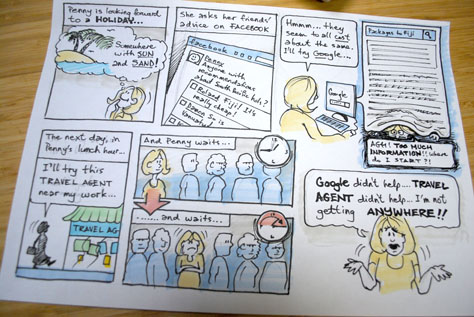 Penny is looking forward
to a HOLIDAY...
Somewhere
with SUN
and SAND!
She asks her friends'
advice on FACEBOOK
facebook
Penny
Anyone with
recommendations
about South Pacific hols?
Roland Fiji! It's
really cheap!
Hmmm... they
seem to all cost
about the same.
I'll try Google...
Google
Packages to Fiji
AGH! TOO MUCH
INFORMATION!! Where
do I START?!
The next day, in
Penny's lunch hour...
I'll try this
TRAVEL AGENT
near my work...
TRAVEL AG
And Penny waits...
....... and waits...
Google didn't help... TRAVEL
AGENT didn't help... I'm not
getting ANYWHERE!!